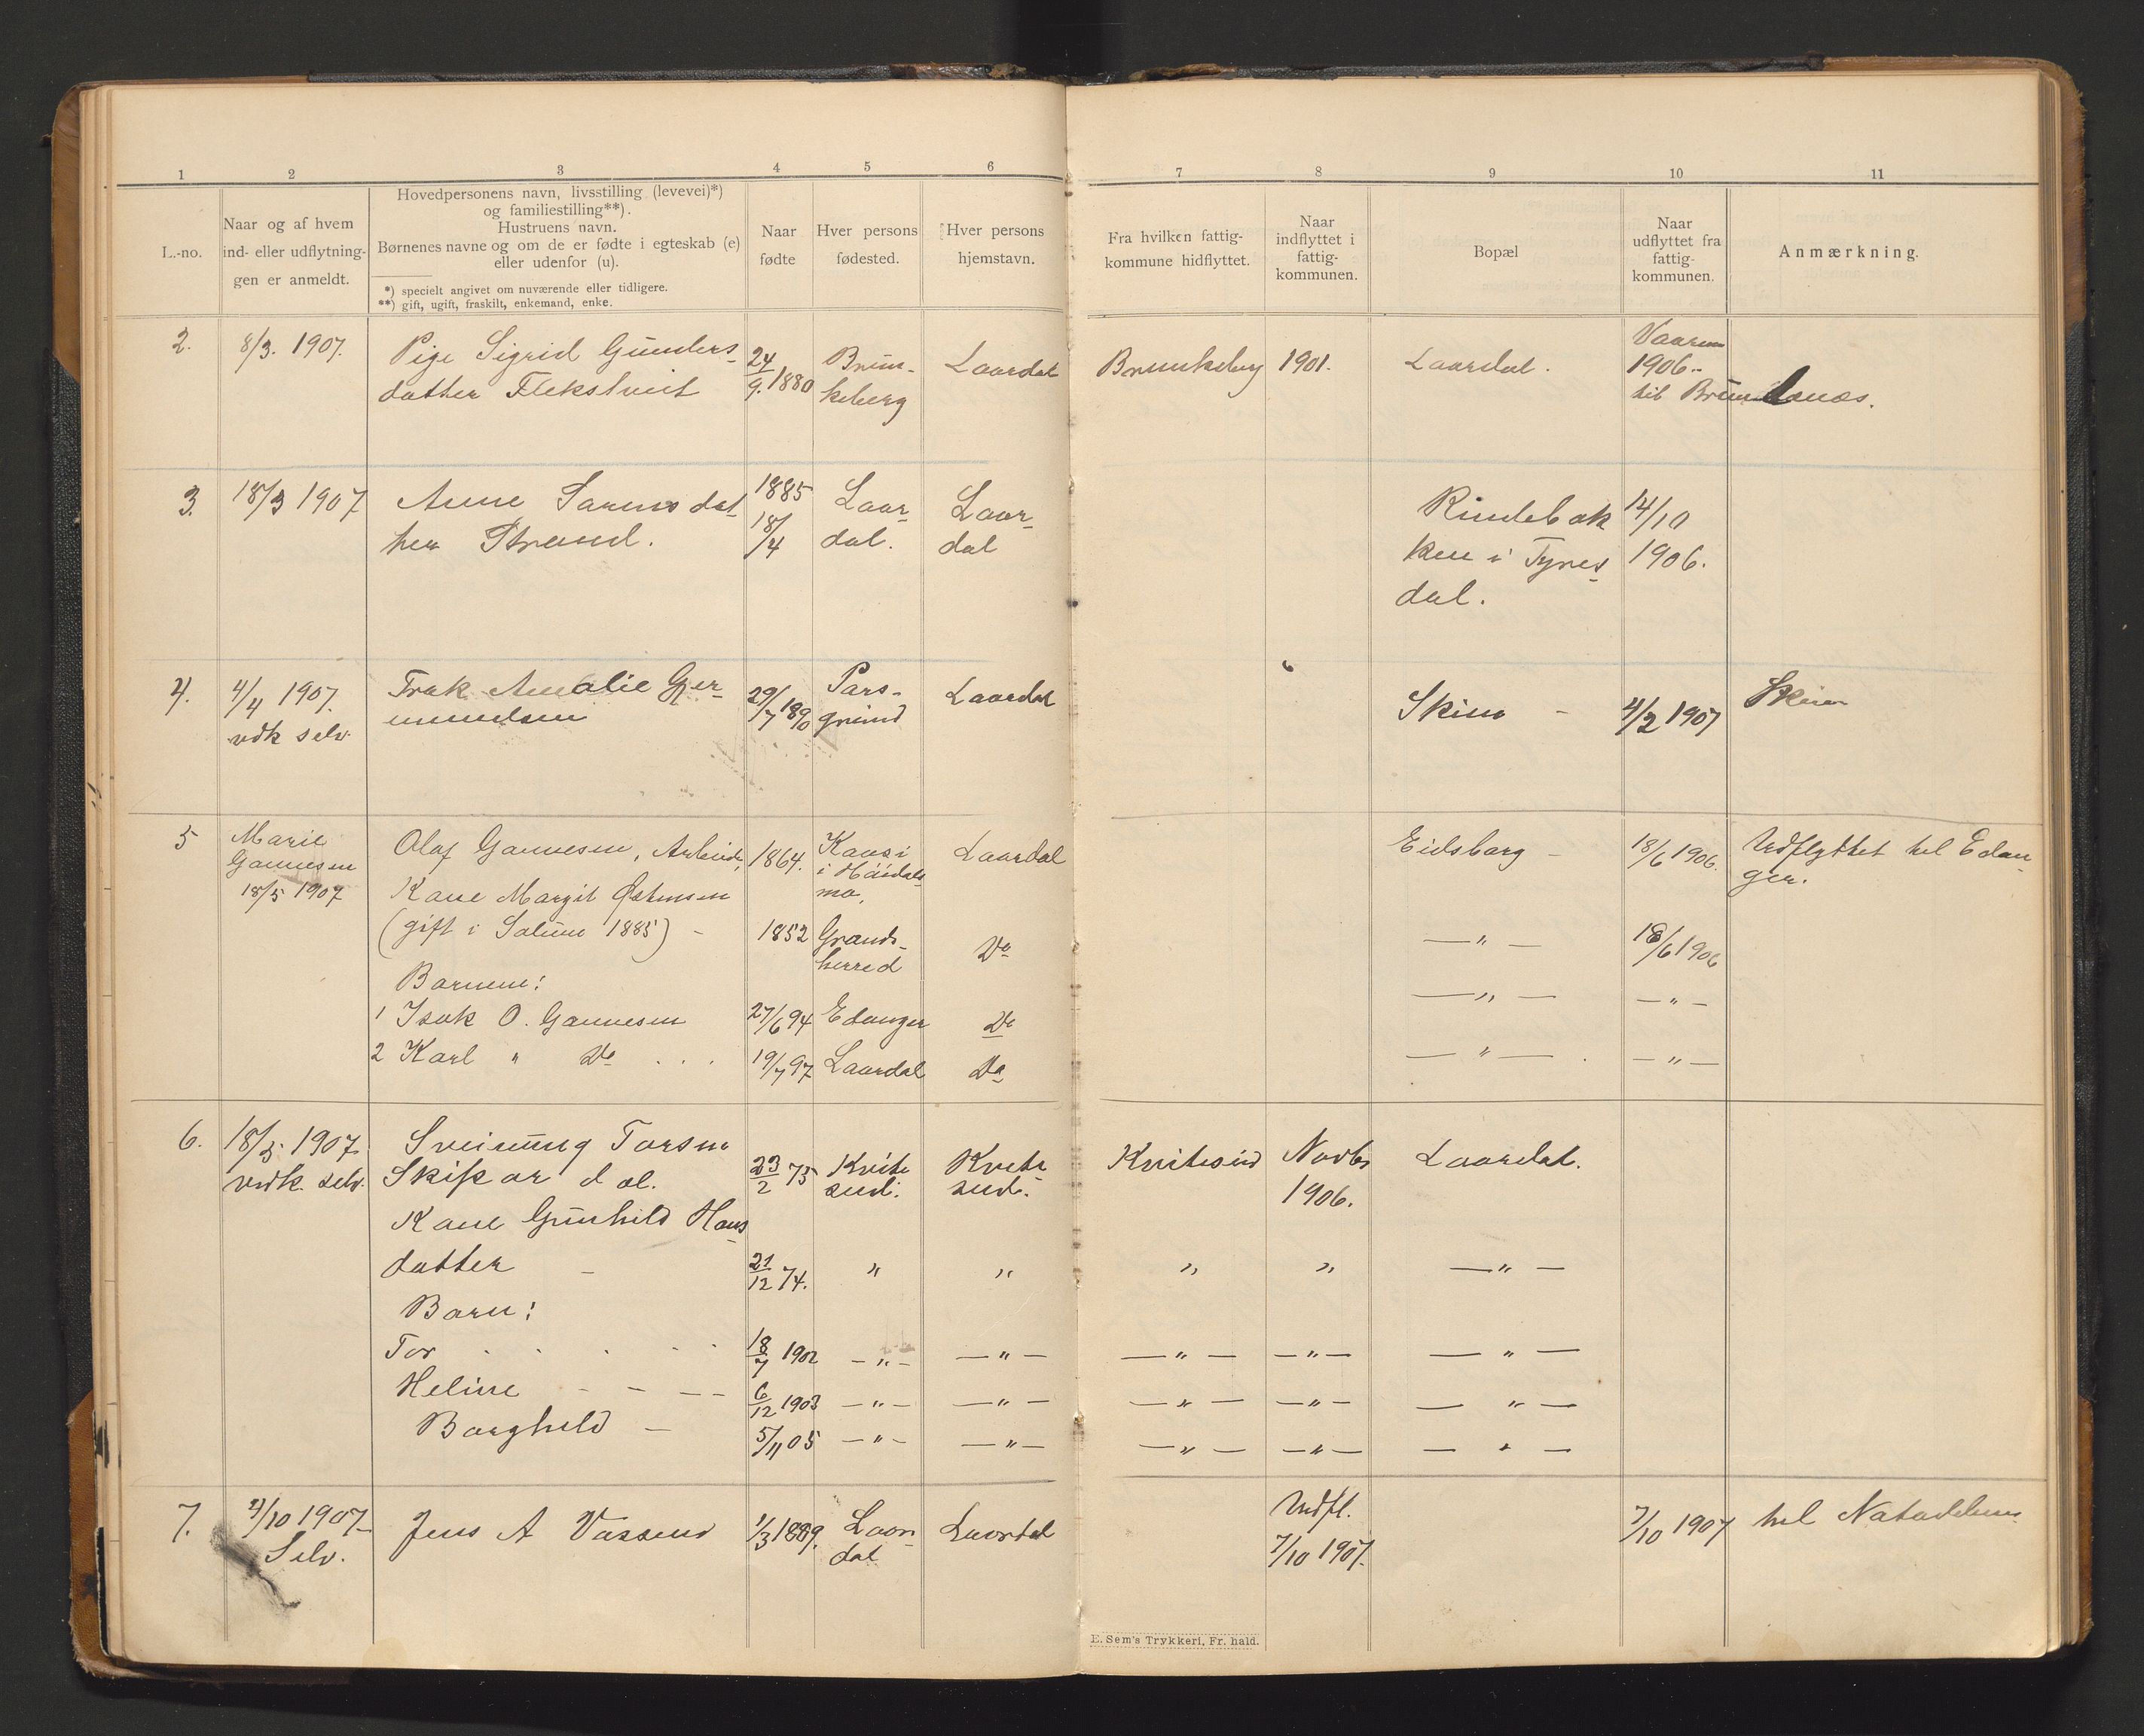 1 2 3 4 5 6 7 8 9 10 11
L.-no.
Naar og af hvem
ind- eller udflytnin-
gen er anmeldt.
Hovedpersonens navn, livsstilling (levevei)*)
og familiestilling**).
Hustruens navn.
Børnenes navne og om de er fødte i egteskab (e)
eller udenfor (u).
*) specielt angivet om nuværende eller tidligere.
**) gift, ugift, fraskilt, enkemand, enke.
Naar
fødte
Hver persons
fødested.
Hver persons
hjemstavn.
Fra hvilken fattig-
kommune hidflyttet.
Naar
indflyttet i
fattig-
kommunen.
Bopæl
Naar
udflyttet fra
fattig-
kommunen.
Anmærkning.
2.
8/3. 1907.
Pige Sigrid Gunders-
datter Flekstveit
24/9. 1880
Brun-
keberg
Laardal
Brunkeberg
1901.
Laardal.
Vaaren
1906..
til Brunlanæs.
3.
18/3 1907
Anne Sørensdat
ter Strand.
1885
18/4
Laar-
dal.
Laar-
dal
Rindebak
ken i Tyres-
dal.
14/10
1906.
4.
4/4 1907.
vdk selv.
Frøk Amalie Ger-
mundsen
29/7 1890
Pors-
grund
Laardal
Skien -
4/2 1907
Skien
5
Marie
Gaunesen
18/5 1907
Olaf Gaunesen, Arbeider,
Kone Margit Østensen
(gift i Solum 1885) -
Børnene:
1 Isak O. Gaunesen
2 Karl " Do . . .
1864.
1852
27/6 94
19/7 97
Kaasi
i Høidals
mo,
Grands-
herred
Edanger
Laardal
Laardal
Do
Do
Do
Eidsborg -
— " —
— " —
— " — .
18/6 1906.
18/6 1906
— " —
— " —
Udflyttet til Edan-
ger.
6.
18/5. 1907
vedk. selv.
Sveinung Torsen
Skipardal.
Kone Gunhild Hans
datter -
Børn:
Tor . . . . .
Heline - - - -
Borghild -
23/2 75
21/12 74.
18/7 1902
6/12 1903
5/11 05
Kvite
seid.
"
— " —
— " —
— " —
Kvite
seid.
"
— " —
— " —
— " —
Kviteseid
"
— " —
— " —
— " —
Novbr
1906.
"
— " —
— " —
— " —
Laardal.
— " —
— " —
— " —
— " —
7.
4/10 1907
Selv.
Jens A Vassend
1/3 1889.
Laar
dal
Laardal
Udfl.
7/10 1907.
7/10 1907
til Notodden
E. Sem's Trykkeri, Fr. hald.